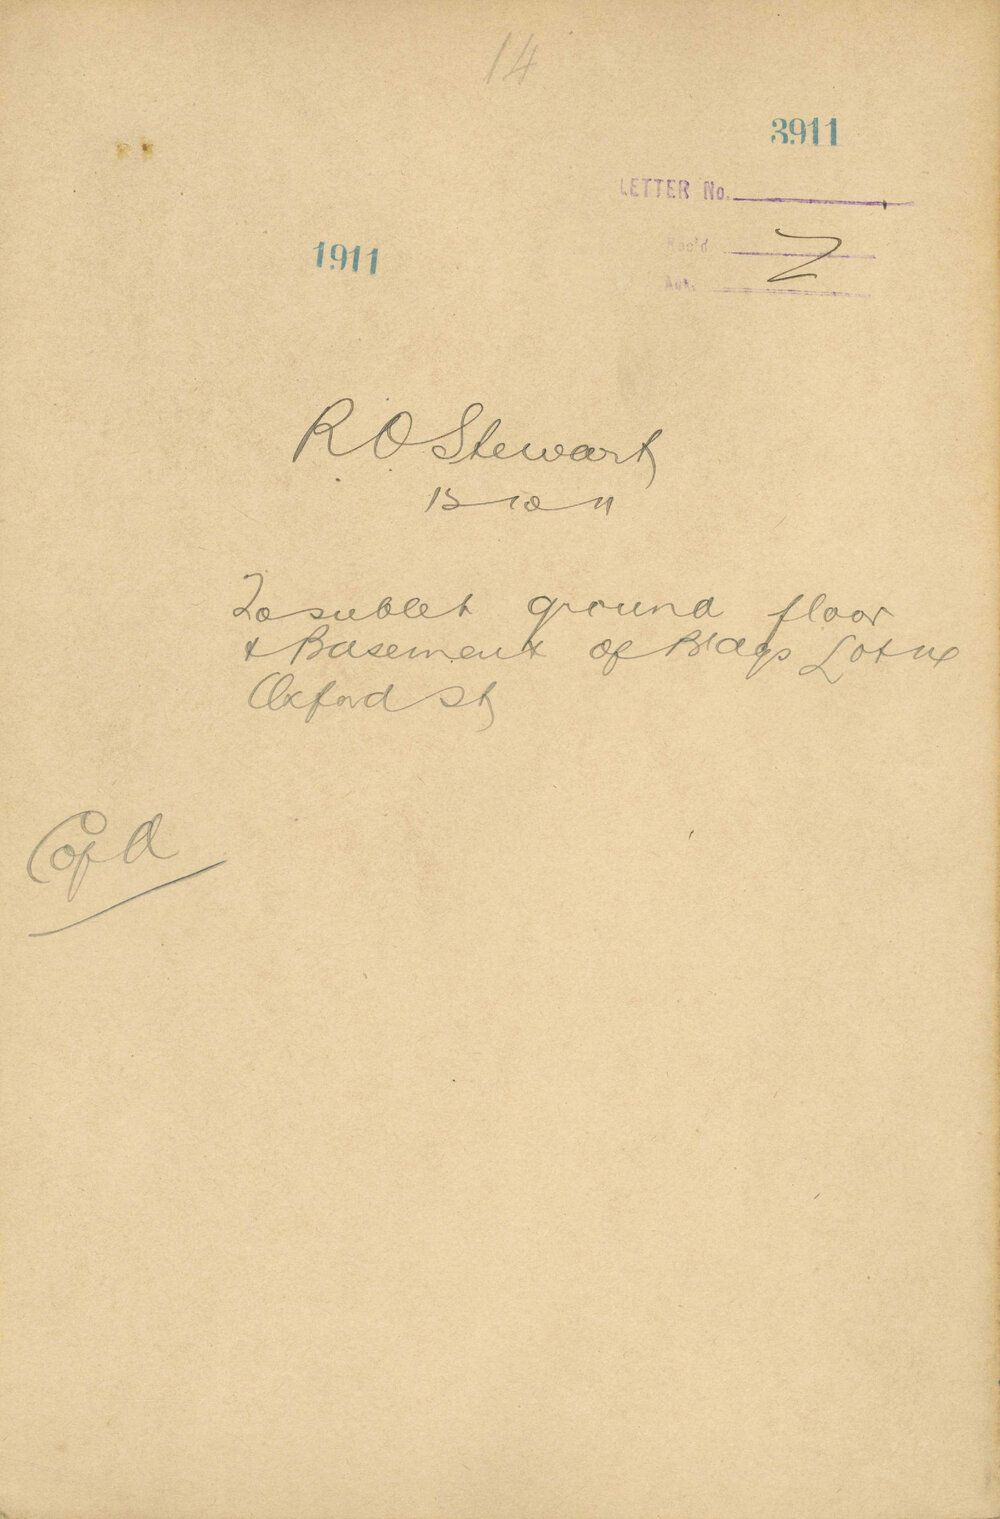 14
3911
LETTER No.
Rec'd
Ack.
1911
R O Stewart
13 10 11
To sublet ground floor
& Basement of Bldgs Lot
Oxford St